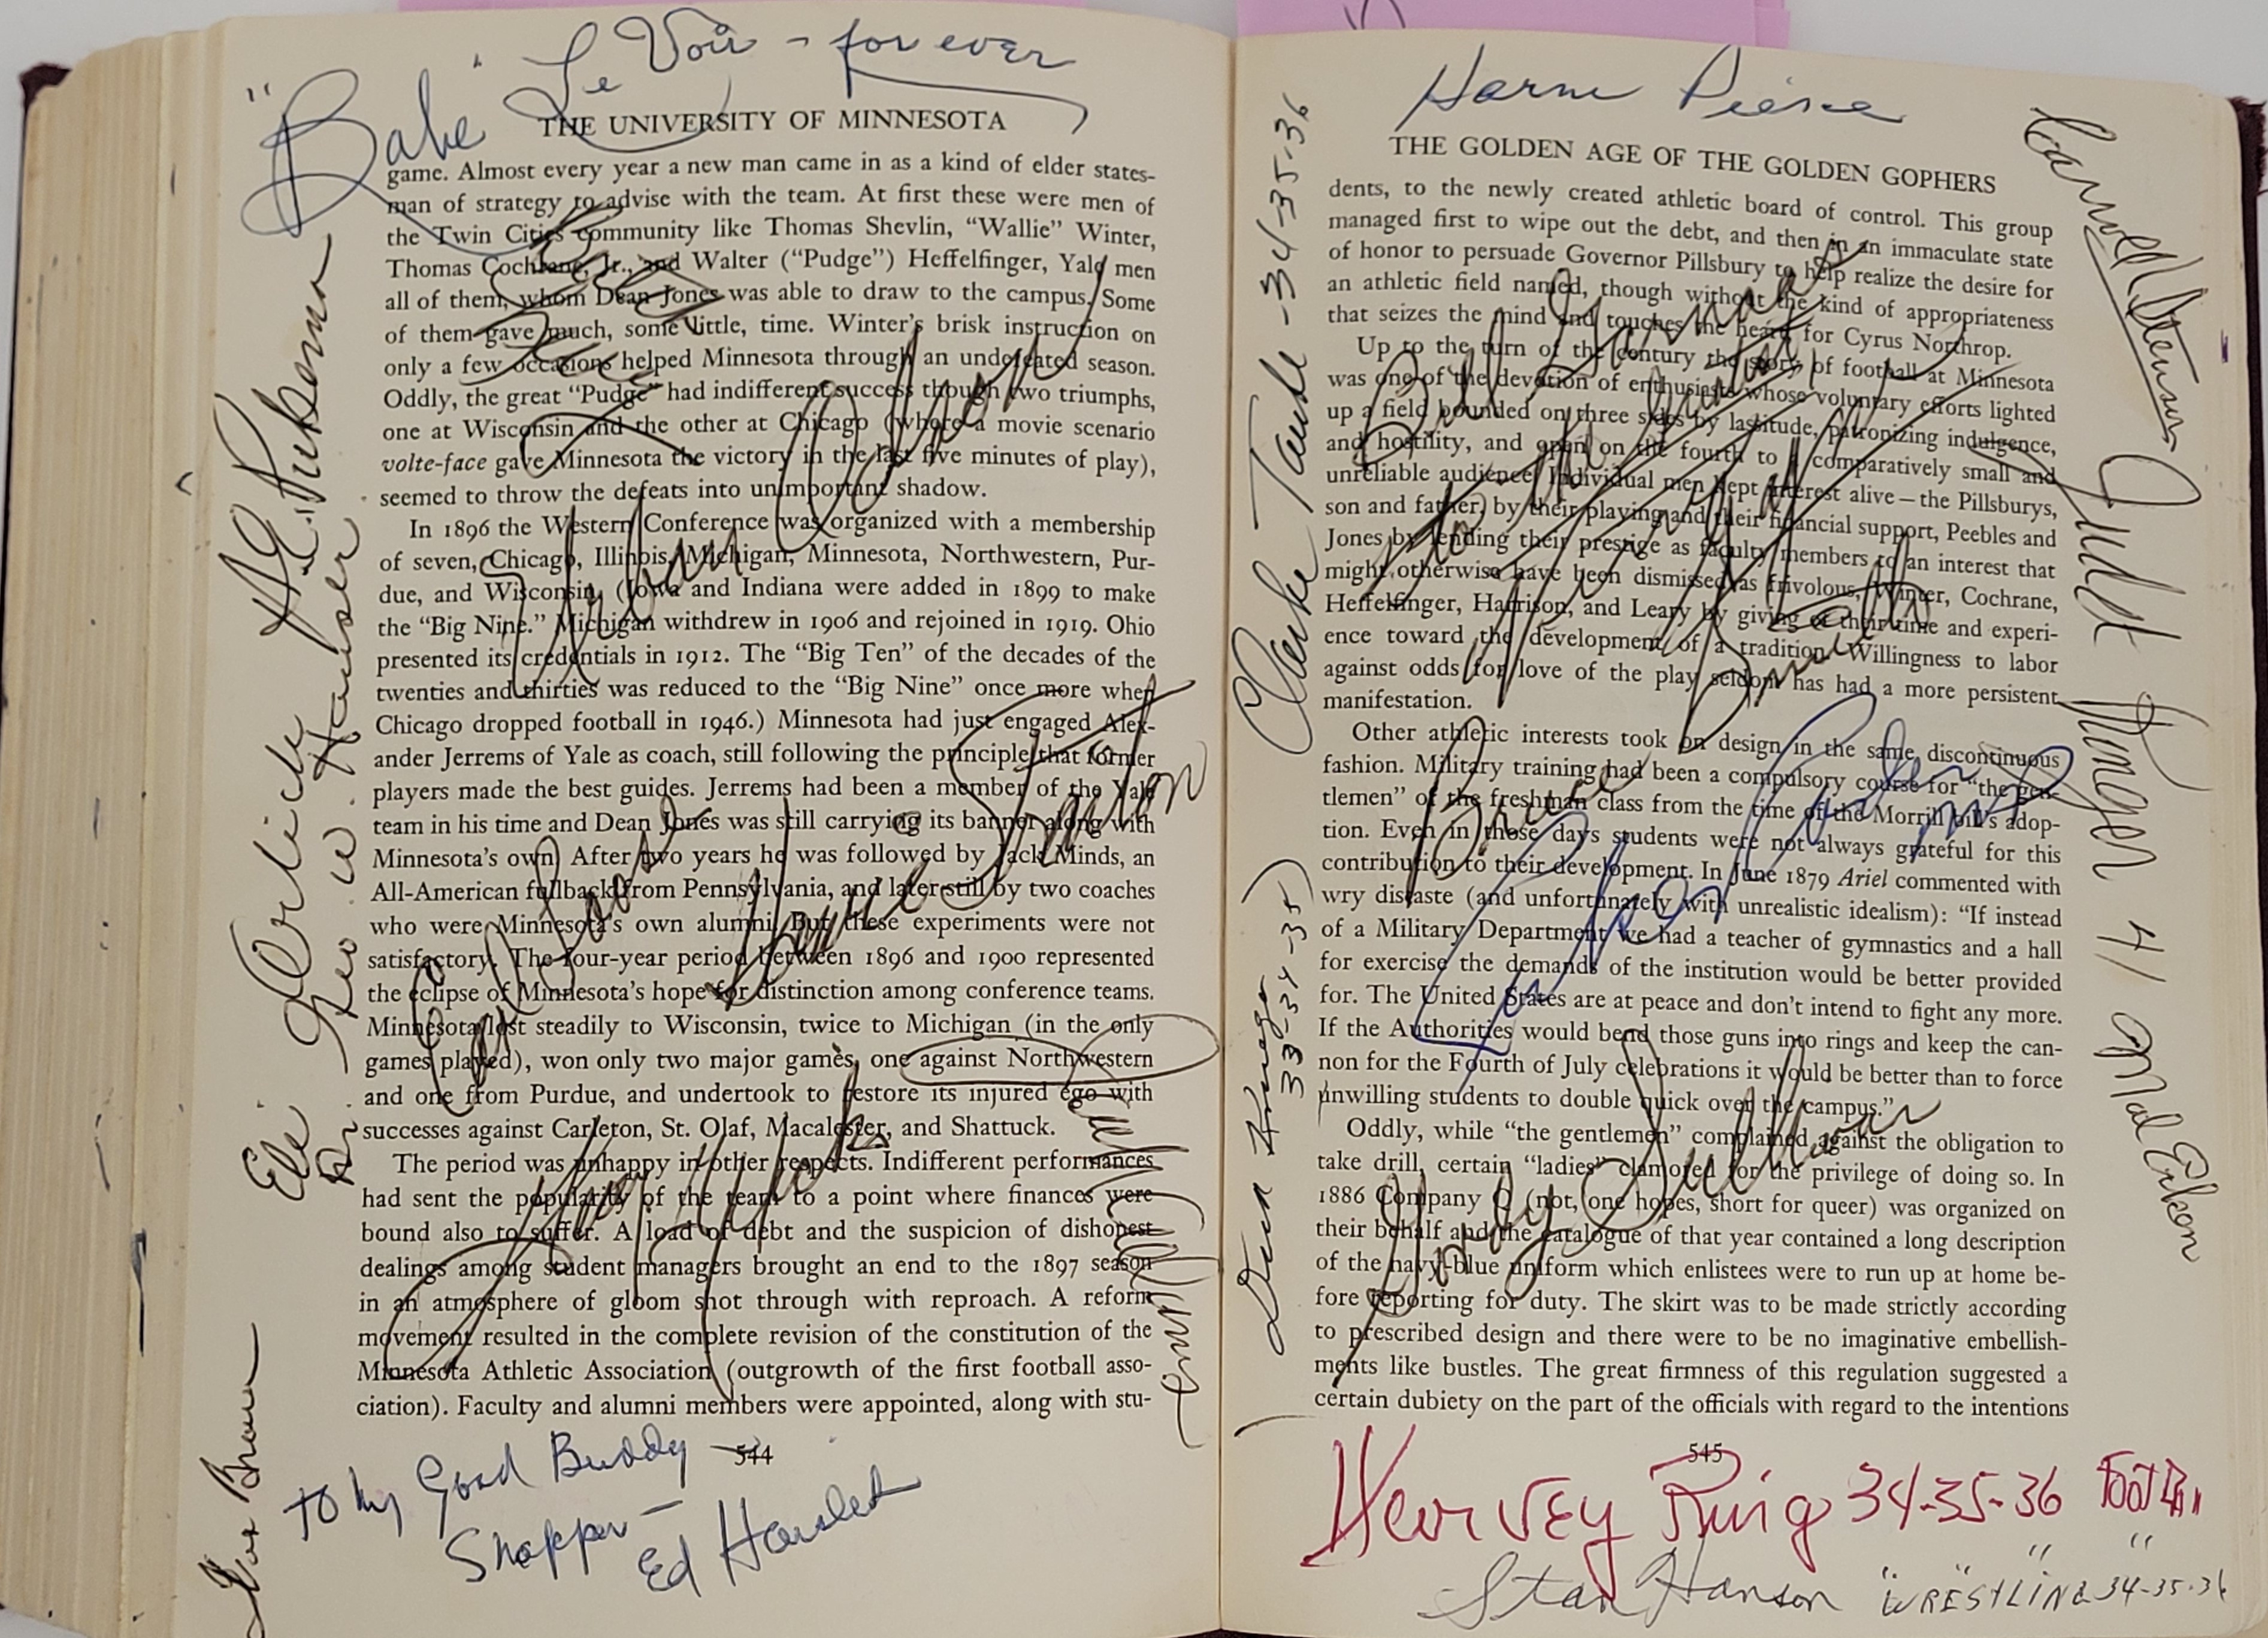 "Babe" Le Voir - for ever
THE UNIVERSITY OF MINNESOTA
game. Almost every year a new man came in as a kind of elder states-
man of strategy to advise with the team. At first these were men of
the Twin Cities community like Thomas Shevlin, "Wallie" Winter,
Thomas Cochrane, Jr., and Walter ("Pudge") Heffelfinger, Yale men
all of them, whom Dean Jones was able to draw to the campus. Some
of them gave much, some little, time. Winter's brisk instruction on
only a few occasions helped Minnesota through an undefeated season.
Oddly, the great "Pudge" had indifferent success though two triumphs,
one at Wisconsin and the other at Chicago (where a movie scenario
volte-face gave Minnesota the victory in the last five minutes of play),
seemed to throw the defeats into unimportant shadow.
In 1896 the Western Conference was organized with a membership
of seven, Chicago, Illinois, Michigan, Minnesota, Northwestern, Pur-
due, and Wisconsin. (Iowa and Indiana were added in 1899 to make
the "Big Nine." Michigan withdrew in 1906 and rejoined in 1919. Ohio
presented its credentials in 1912. The "Big Ten" of the decades of the
twenties and thirties was reduced to the "Big Nine" once more when
Chicago dropped football in 1946.) Minnesota had just engaged Alex-
ander Jerrems of Yale as coach, still following the principle that former
players made the best guides. Jerrems had been a member of the Yale
team in his time and Dean Jones was still carrying its banner along with
Minnesota's own. After two years he was followed by Jack Minds, an
All-American fullback from Pennsylvania, and later still by two coaches
who were Minnesota's own alumni. But these experiments were not
satisfactory. The four-year period between 1896 and 1900 represented
the eclipse of Minnesota's hope for distinction among conference teams.
Minnesota lost steadily to Wisconsin, twice to Michigan (in the only
games played), won only two major games, one against Northwestern
and one from Purdue, and undertook to restore its injured ego with
successes against Carleton, St. Olaf, Macalester, and Shattuck.
The period was unhappy in other respects. Indifferent performances
had sent the popularity of the team to a point where finances were
bound also to suffer. A load of debt and the suspicion of dishonest
dealings among student managers brought an end to the 1897 season
in an atmosphere of gloom shot through with reproach. A reform
movement resulted in the complete revision of the constitution of the
Minnesota Athletic Association (outgrowth of the first football asso-
ciation). Faculty and alumni members were appointed, along with stu-
544
To my Good Buddy
Snapper -
Ed
Dr. Geo. W. Hauser
Urban Odson
Bruce
Harm Pierce
THE GOLDEN AGE OF THE GOLDEN GOPHERS
dents, to the newly created athletic board of control. This group
managed first to wipe out the debt, and then in an immaculate state
of honor to persuade Governor Pillsbury to help realize the desire for
an athletic field named, though without the kind of appropriateness
that seizes the mind and touches the heart, for Cyrus Northrop.
Up to the turn of the century the story of football at Minnesota
was one of the devotion of enthusiasts whose voluntary efforts lighted
up a field bounded on three sides by lassitude, patronizing indulgence,
and hostility, and open on the fourth to a comparatively small and
unreliable audience. Individual men kept interest alive—the Pillsburys,
son and father, by their playing and their financial support, Peebles and
Jones by lending their prestige as faculty members to an interest that
might otherwise have been dismissed as frivolous, Winter, Cochrane,
Heffelfinger, Harrison, and Leary by giving of their time and experi-
ence toward the development of a tradition. Willingness to labor
against odds for love of the play seldom has had a more persistent
manifestation.
Other athletic interests took on design in the same discontinuous
fashion. Military training had been a compulsory course for "the gen-
tlemen" of the freshman class from the time of the Morrill bill's adop-
tion. Even in those days students were not always grateful for this
contribution to their development. In June 1879 Ariel commented with
wry distaste (and unfortunately with unrealistic idealism): "If instead
of a Military Department we had a teacher of gymnastics and a hall
for exercise the demands of the institution would be better provided
for. The United States are at peace and don't intend to fight any more.
If the Authorities would bend those guns into rings and keep the can-
non for the Fourth of July celebrations it would be better than to force
unwilling students to double quick over the campus."
Oddly, while "the gentlemen" complained against the obligation to
take drill, certain "ladies" clamored for the privilege of doing so. In
1886 Company Q (not, one hopes, short for queer) was organized on
their behalf and the catalogue of that year contained a long description
of the navy-blue uniform which enlistees were to run up at home be-
fore reporting for duty. The skirt was to be made strictly according
to prescribed design and there were to be no imaginative embellish-
ments like bustles. The great firmness of this regulation suggested a
certain dubiety on the part of the officials with regard to the intentions
545
Harvey Ring 34-35-36 Football
Stan Hanson "WRESTLING" 34-35-36
34-35-36
33-34-35
Bruce Smith